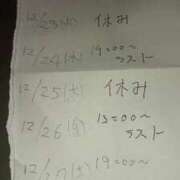 12/23(火) 休み
12/24(水) 19:00〜
ラスト
12/25(木) 休み
12/26(金) 15:00〜
ラスト
12/27(土) 19:00〜